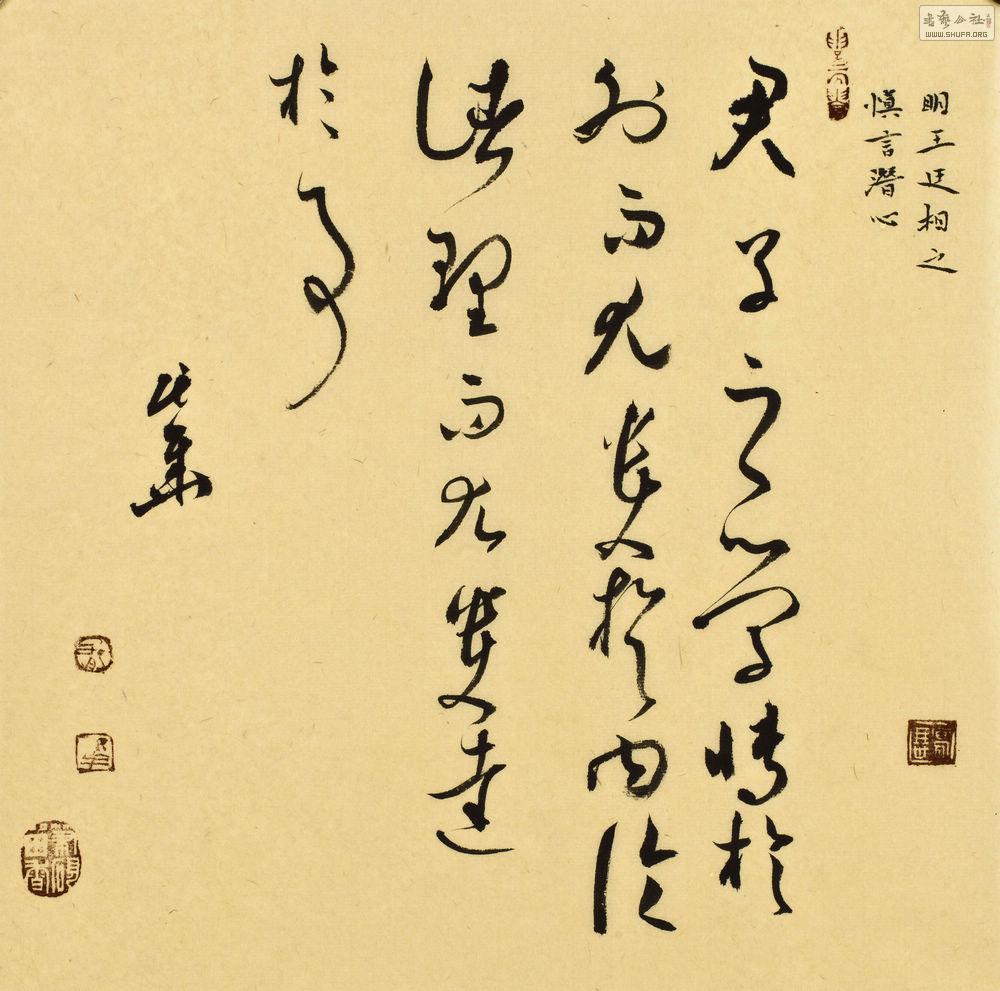 書藝公社
WWW.SHUFA.ORG
明王廷相之
慎言潛心
君子之學博於
外而尤貴於內論
諸理而尤貴達
於事